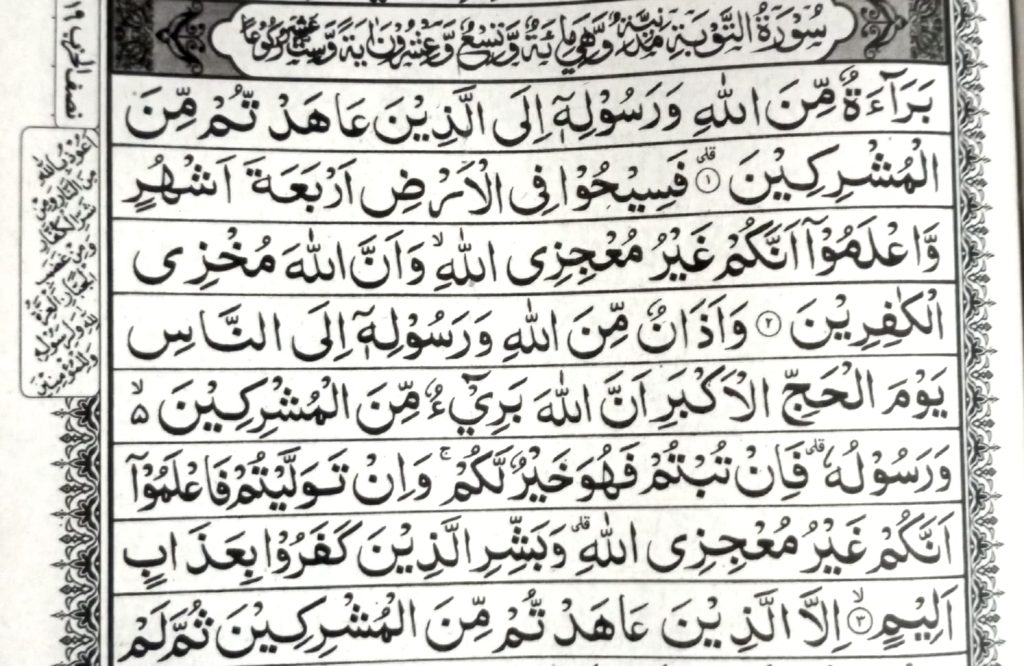 سُوْرَةُ التَّوْبَةِ مَدَنِيَّةٌ وَّهِيَ مِائَةٌ وَّتِسْعٌ وَّعِشْرُوْنَ اٰيَةً وَّسِتَّةَ عَشَرَ رُكُوْعًا
بَرَآءَةٌ مِّنَ اللّٰهِ وَرَسُوْلِهٖٓ اِلَى الَّذِيْنَ عَاهَدْ تُّمْ مِّنَ
الْمُشْرِكِيْنَ ۙ۱ فَسِيْحُوْا فِى الْاَرْضِ اَرْبَعَةَ اَشْهُرٍ
وَّاعْلَمُوْٓا اَنَّكُمْ غَيْرُ مُعْجِزِى اللّٰهِ ۙ وَاَنَّ اللّٰهَ مُخْزِى
الْكٰفِرِيْنَ ۲ وَاَذَانٌ مِّنَ اللّٰهِ وَرَسُوْلِهٖٓ اِلَى النَّاسِ
يَوْمَ الْحَجِّ الْاَكْبَرِ اَنَّ اللّٰهَ بَرِيْٓءٌ مِّنَ الْمُشْرِكِيْنَ ۙ۵
وَرَسُوْلُهٗ ۗ فَاِنْ تُبْتُمْ فَهُوَ خَيْرٌ لَّكُمْ ۚ وَاِنْ تَوَلَّيْتُمْ فَاعْلَمُوْٓا
اَنَّكُمْ غَيْرُ مُعْجِزِى اللّٰهِ ۗ وَبَشِّرِ الَّذِيْنَ كَفَرُوْا بِعَذَابٍ
اَلِيْمٍ ۙ۳ اِلَّا الَّذِيْنَ عَاهَدْ تُّمْ مِّنَ الْمُشْرِكِيْنَ ثُمَّ لَمْ
نصف الحزب ۱۹
اعوذ بالله
من النار ومن
شر الكفار
ومن غضب
الجبار العزة
لله ولرسوله
وللمؤمنين